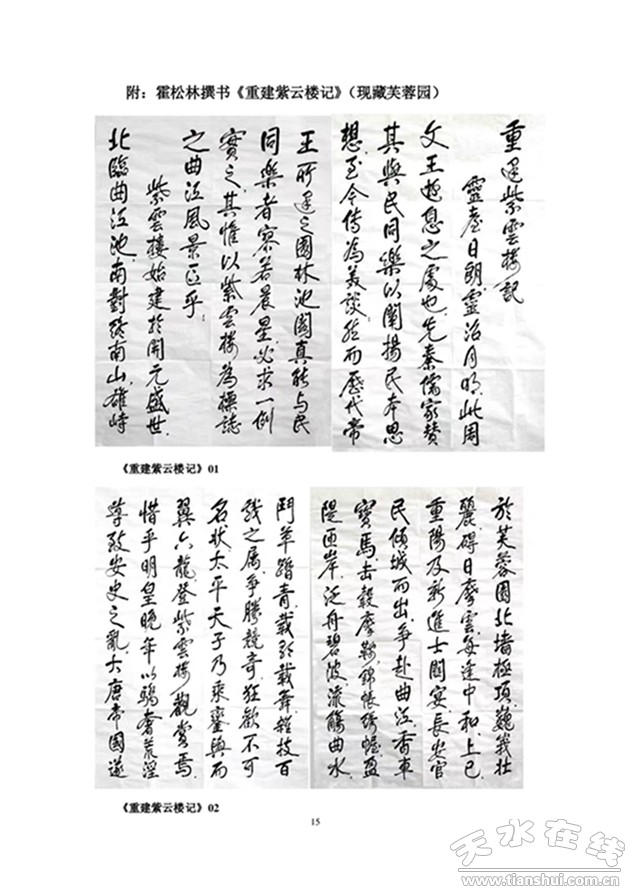 附：霍松林撰书《重建紫云楼记》（现藏芙蓉园）
重建紫雲樓記
靈臺日朗，靈沼月明，此周
文王遊息之處也。先秦儒家贊
其與民同樂以闡揚民本思
想，至今傳為美談。然而歷代帝
王所建之園林池閣真能与民
同樂者寥若晨星，必求一例
實之，其惟以紫雲樓為標誌
之曲江風景區乎？
紫雲樓始建於開元盛世，
北臨曲江池，南對終南山，雄峙
《重建紫云楼记》01
於芙蓉園北墙極頂，巍峩壮
麗，碍日摩雲。每逢中和、上巳、
重陽及新進士關宴，長安官
民傾城而出，争赴曲江。香車
寶馬，击毂摩鞍；錦帐绣幄，盈
隄匝岸。泛舟碧波，流觞曲水，
鬥草踏青，載歌載舞，雜技百
戏之属，争騰競奇，狂歡不可
名状。太平天子乃乘鑾輿而
翼六龍，登紫雲樓觀賞焉。
惜乎明皇晚年以驕奢荒淫
導致安史之亂，大唐帝國遂
《重建紫云楼记》02
15
天水在线
www.tianshui.com.cn